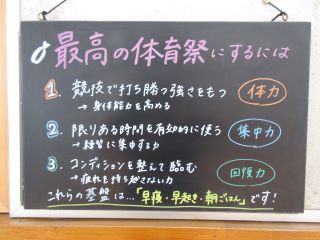 最高の体育祭にするには
1. 競技で打ち勝つ強さをもつ 体力
→ 身体能力を高める
2. 限りある時間を有効的に使う 集中力
→ 練習に集中する力
3. コンディションを整えて臨む 回復力
→ 疲れを持ち越さない力
これらの基盤は…「早寝・早起き・朝ごはん」です!